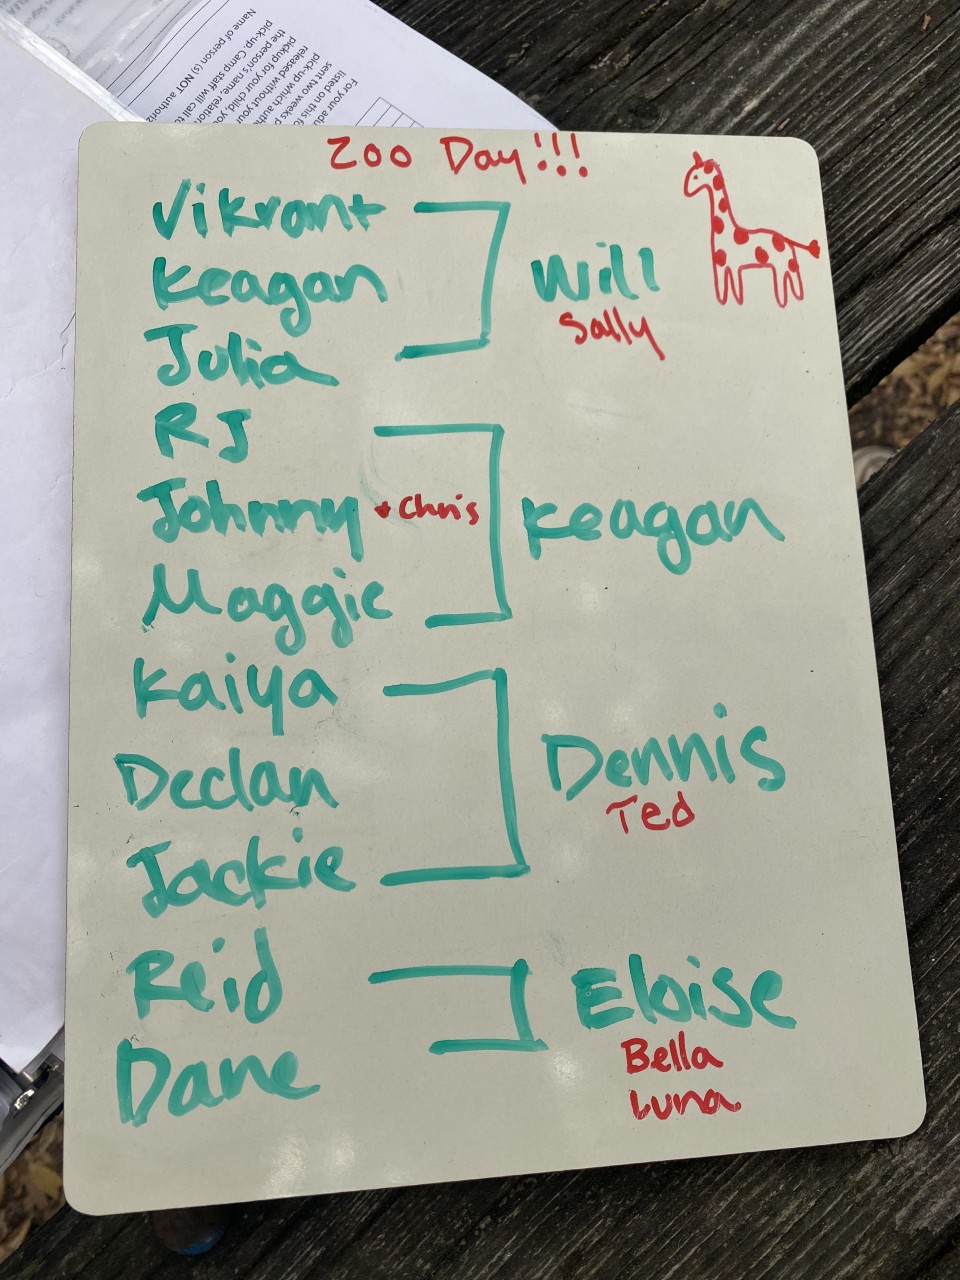 Name of person (s) NOT authoriz
pick-up. Camp staff will call to
the person's name, relation
pickup for your child, you
released without your
pick-up which auth
sent two weeks p
listed on this fo
For your adu
Zoo Day!!!
Vikrant
Keagan
Julia
Will
Sally
RJ
Johnny + Chris
Maggie
Keagan
Kaiya
Declan
Jackie
Dennis
Ted
Reid
Dane
Eloise
Bella
Luna